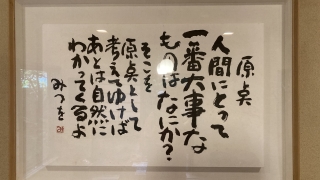 原点
人間にとって
一番大事な
ものはなにか?
そこを
原点として
考えてゆけば
あとは自然に
わかってくるよ
みつを